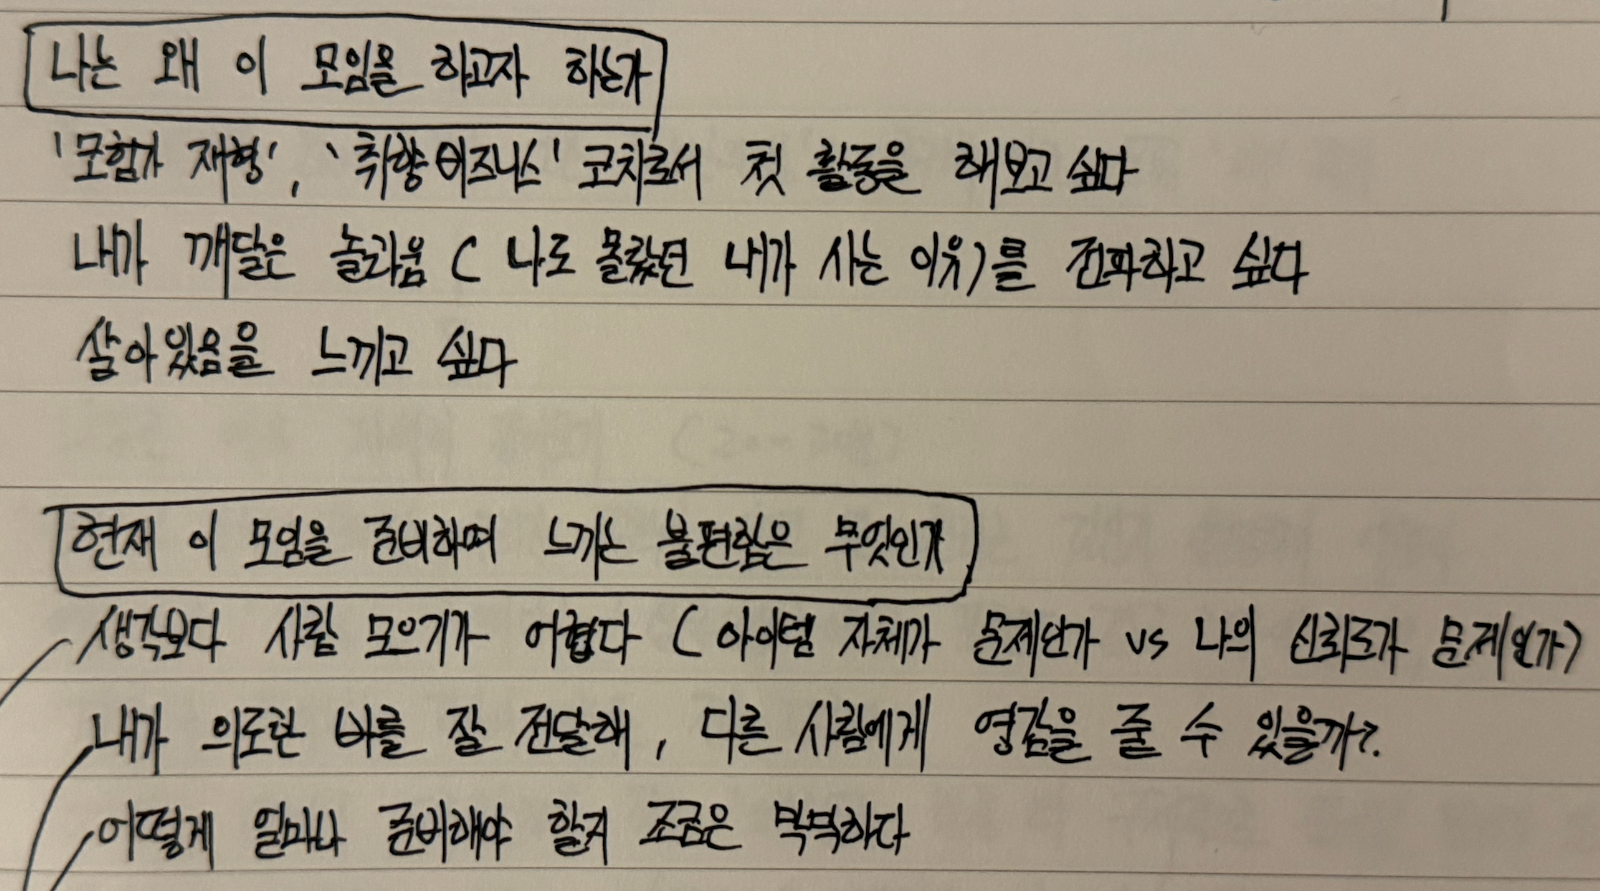 나는 왜 이 모임을 하고자 하는가
'모험가 재형', '취향비즈니스' 코치로서 첫 활동을 해보고 싶다
내가 깨달은 놀라움 ( 나도 몰랐던 내가 사는 이유)를 전파하고 싶다
살아있음을 느끼고 싶다
현재 이 모임을 준비하며 느끼는 불편함은 무엇인가
생각보다 사람 모으기가 어렵다 ( 아이템 자체가 문제인가 vs 나의 신뢰도가 문제인가)
내가 의도한 바를 잘 전달해, 다른 사람에게 영감을 줄 수 있을까?
어떻게 얼마나 준비해야 할지 조금은 막막하다